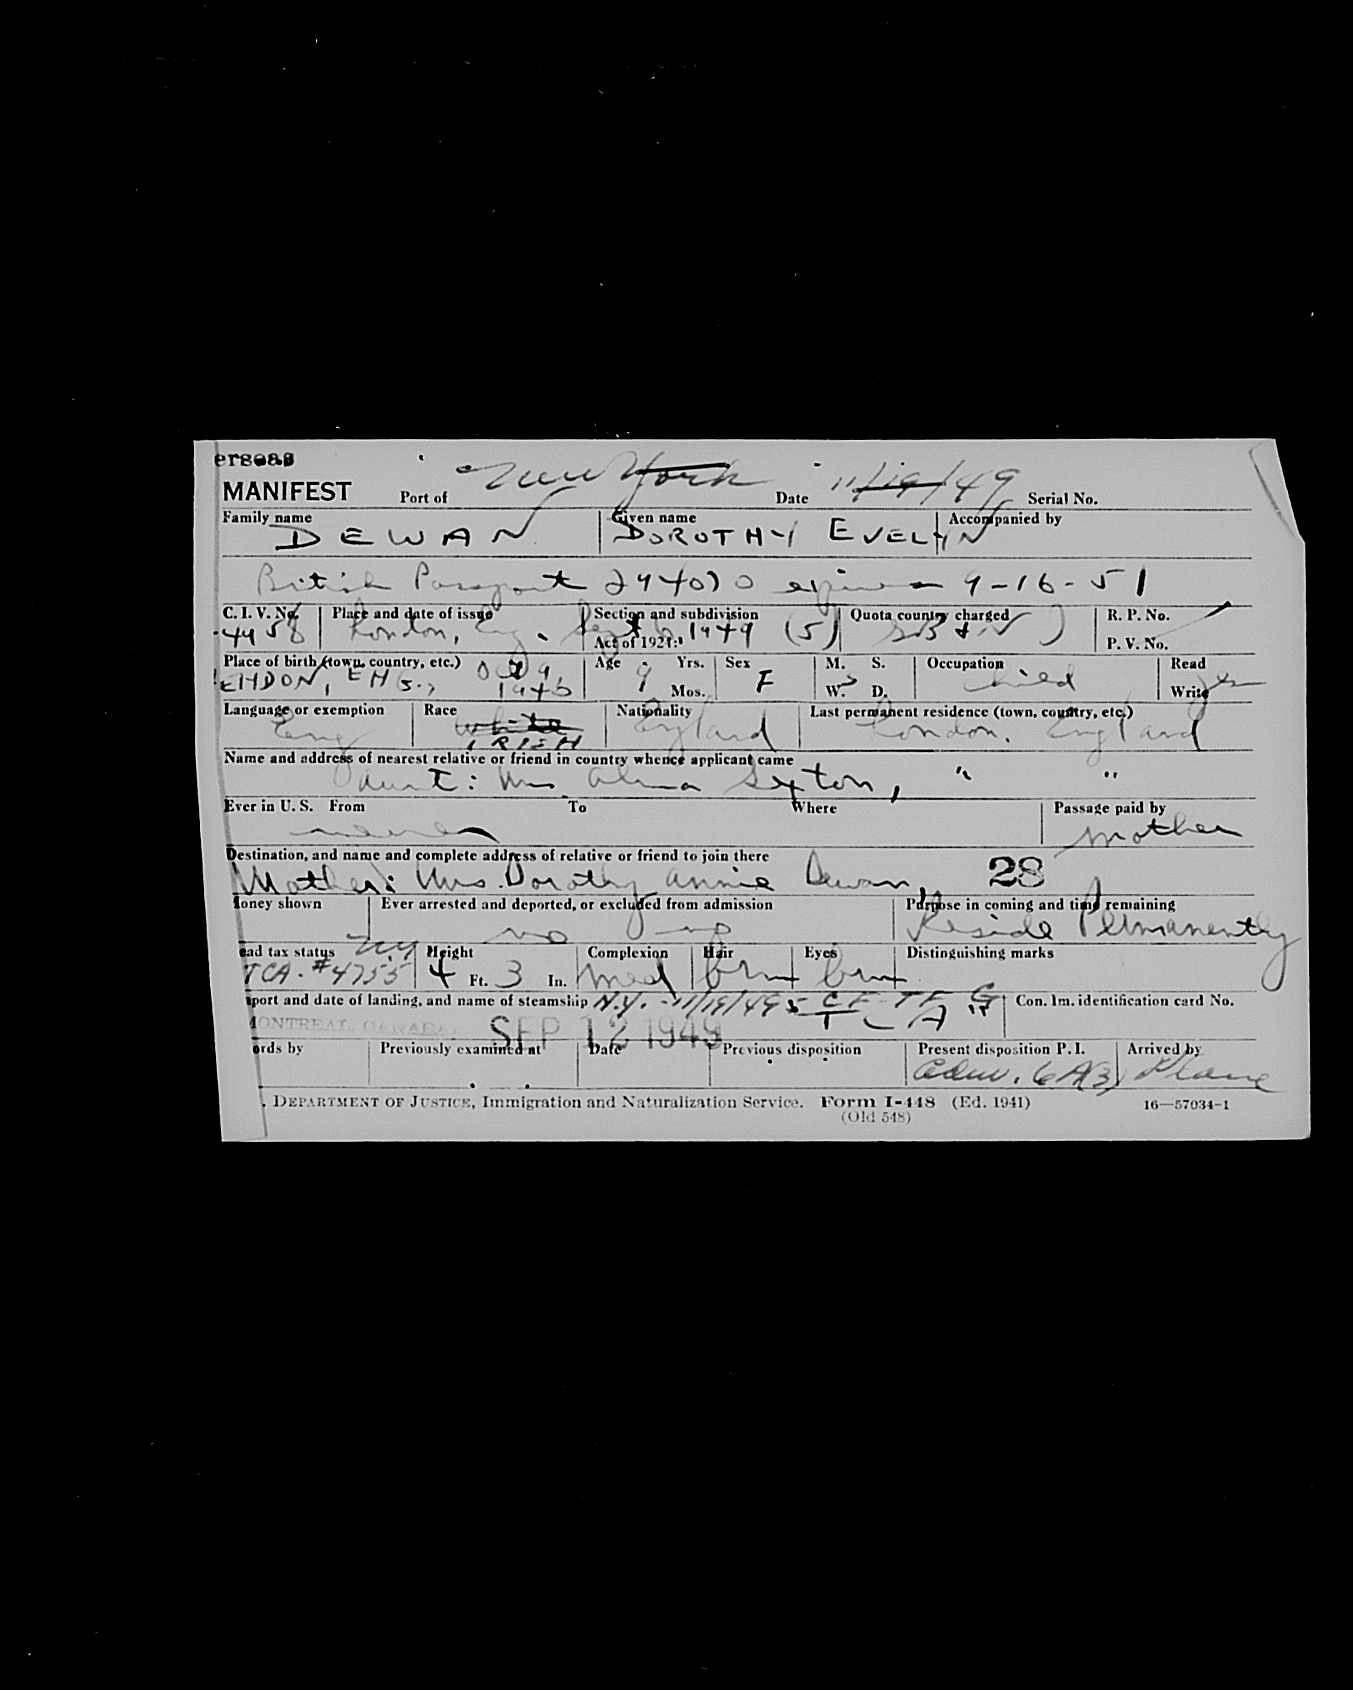 erseas
MANIFEST Port of New York Date 11/19/49 Serial No.
Family name Given name Accompanied by
DEWAN DOROTHY EVELYN
British Passport expires 9-16-51
C. I. V. No. Place and date of issue Section and subdivision Quota country charged R. P. No.
London, Eng. Sept 6, 1949 (5)
Act of 1924: P. V. No.
Place of birth (town, country, etc.) Age Yrs. Sex M. S. Occupation Read
ENDON, ENG., Oct 9 9 F child yes
1940 Mos. W. D. Write
Language or exemption Race Nationality Last permanent residence (town, country, etc.)
Eng white England London, England
IRISH
Name and address of nearest relative or friend in country whence applicant came
Aunt: Mrs. Alma Sexton, " "
Ever in U. S. From To Where Passage paid by
never mother
Destination, and name and complete address of relative or friend to join there
Mother: Mrs. Dorothy Annie Dewan, 28
Money shown Ever arrested and deported, or excluded from admission Purpose in coming and time remaining
no no Reside Permanently
ead tax status NY Height Complexion Hair Eyes Distinguishing marks
TCA. #4755 4 Ft. 3 In. Med brn brn
port and date of landing, and name of steamship N.Y. - 11/19/49 CF-TFG Con. Im. identification card No.
MONTREAL, CANADA. SEP 12 1949 TCA
ords by Previously examined at Date Previous disposition Present disposition P. I. Arrived by
Adm. 6A(3) Plane
. DEPARTMENT OF JUSTICE, Immigration and Naturalization Service. Form I-448 (Ed. 1941) 16—57034-1
(Old 548)